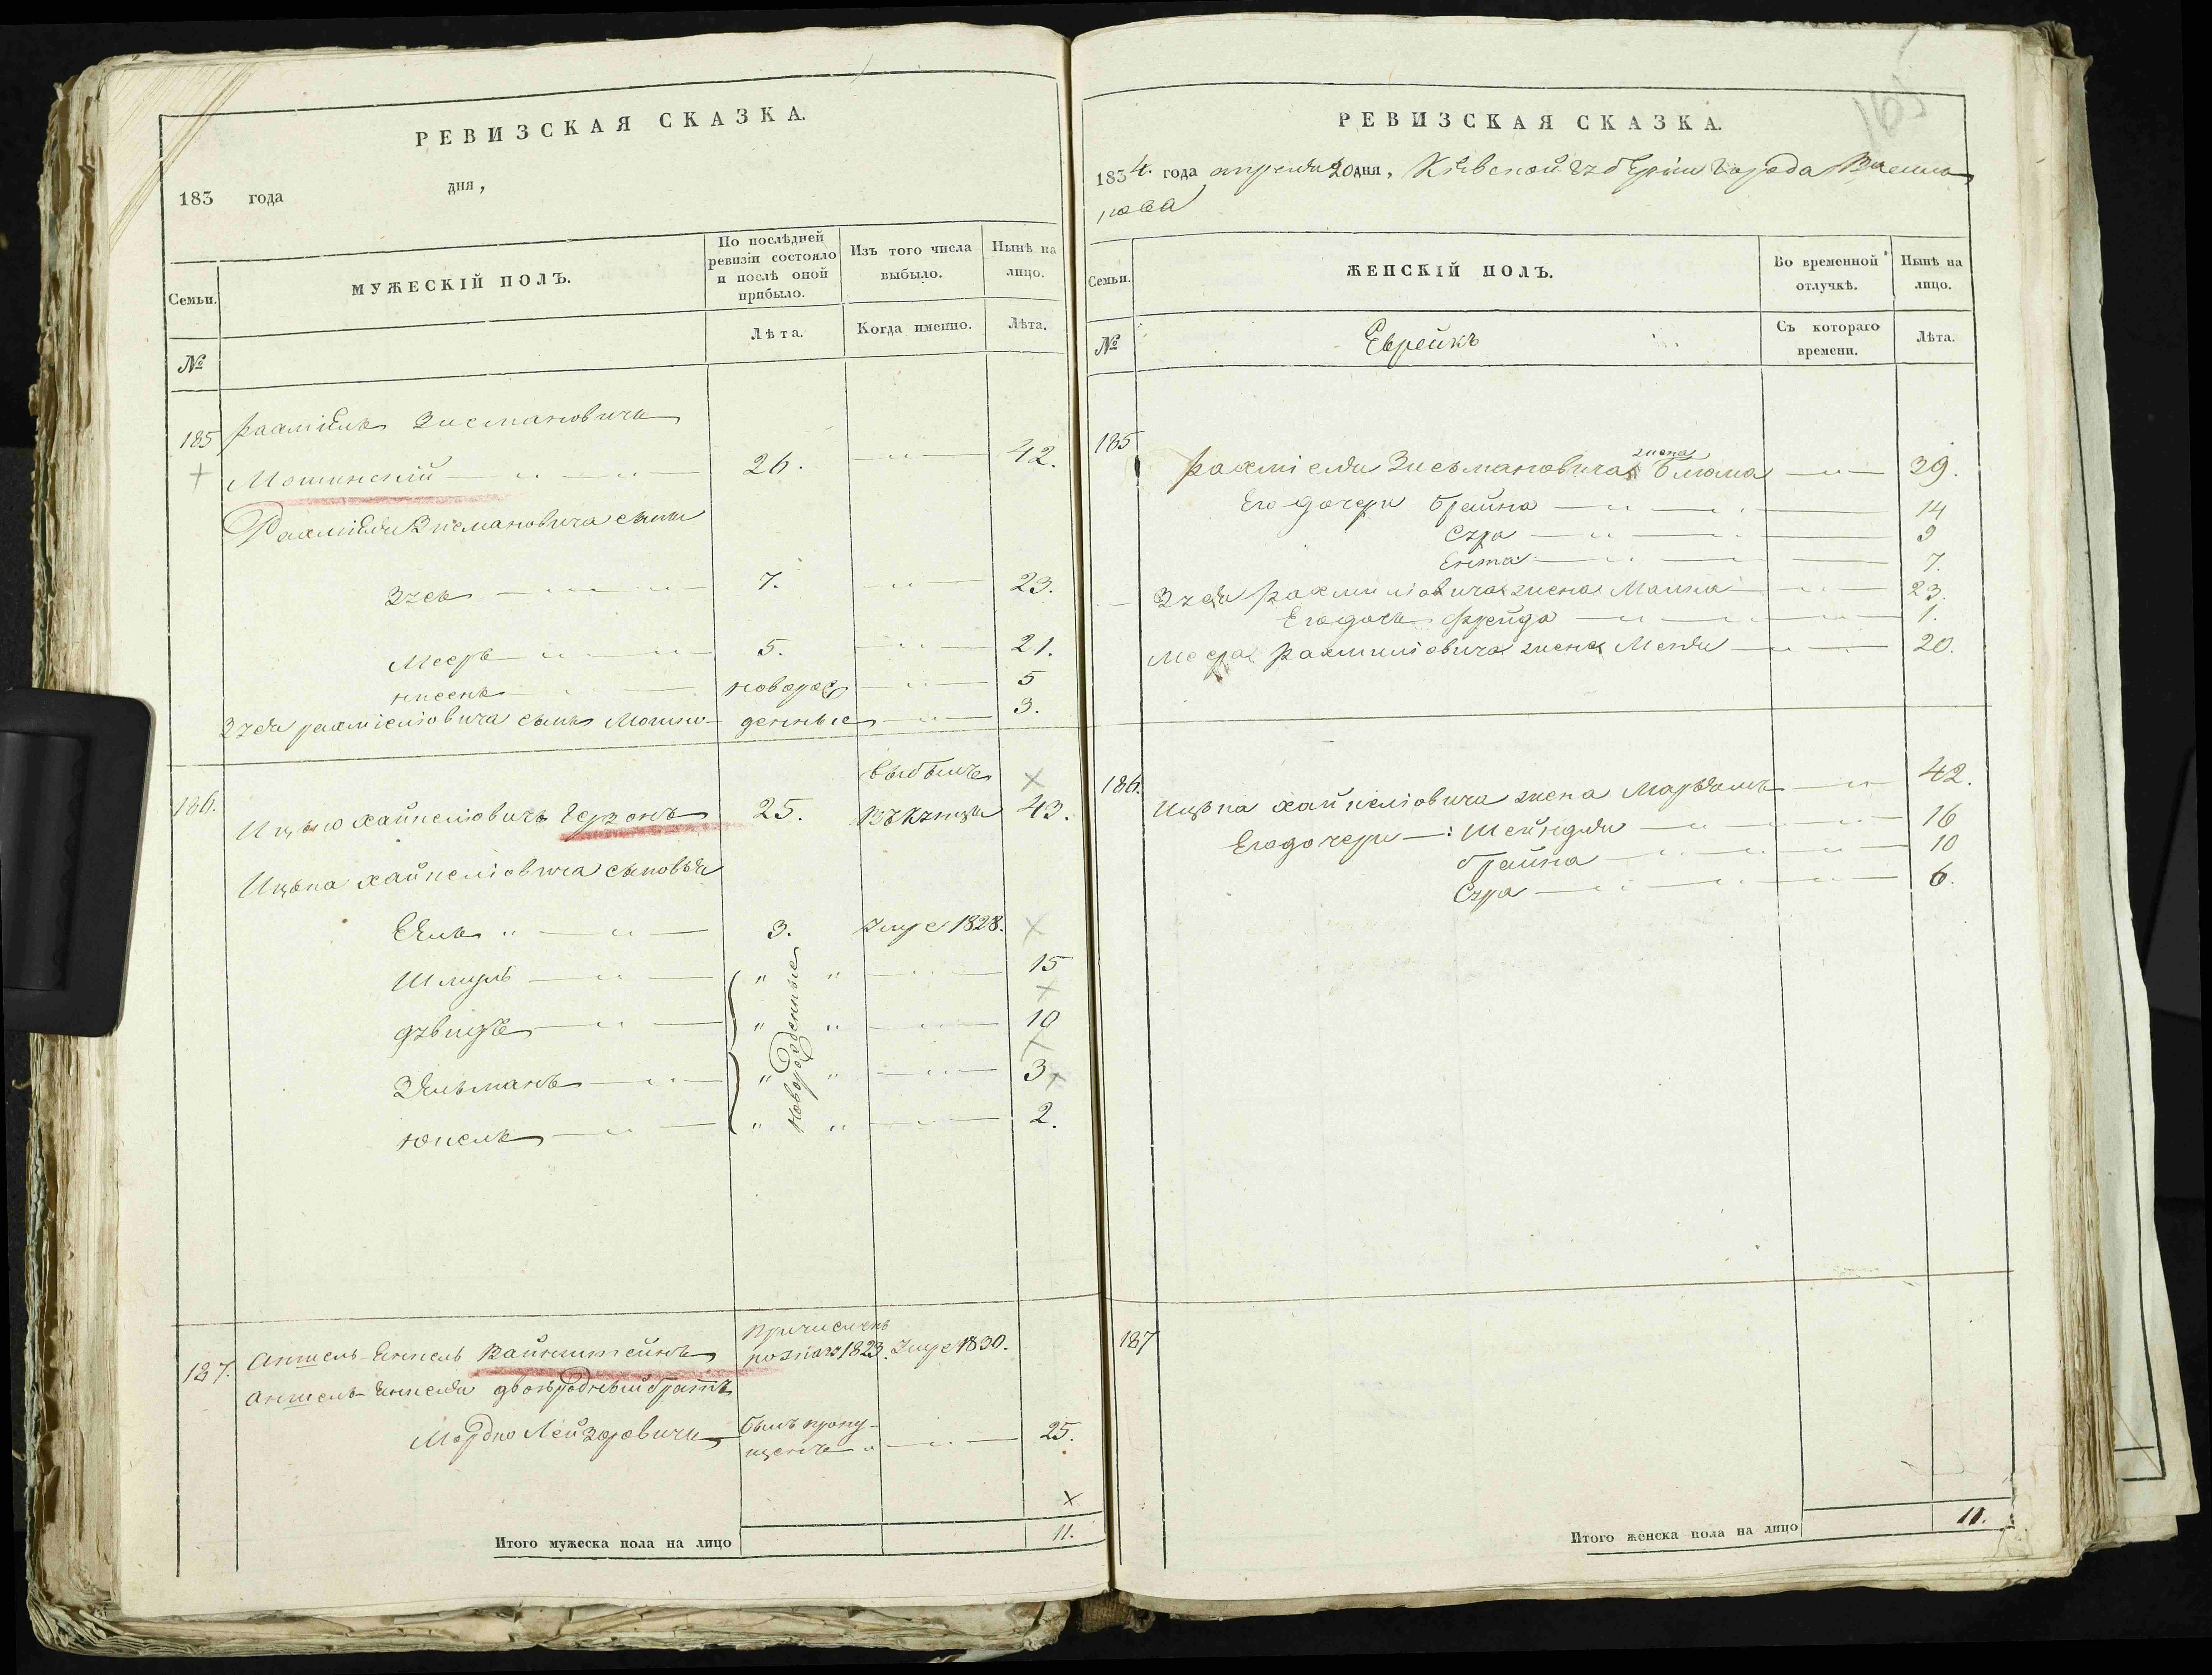 РЕВИЗСКАЯ СКАЗКА.
183 года дня,
Семьи.
МУЖЕСКІЙ ПОЛЪ.
По послѣдней ревизіи состояло и послѣ оной прибыло.
Изъ того числа выбыло.
Нынѣ на лицо.
№
Лѣта.
Когда именно.
Лѣта.
185 Рахміель Зисмановичь
Мошинскій 26. 42.
Рахміеля Зисмановича сыны
Зусь 7. 23.
Мееръ 5. 21.
нисень новорож 5
Зуся рахміеліовича сынъ Мошко денные 3.
выбылъ
186. Ицько хаикеліовичь Герзонъ 25. въ Купцы 43.
Ицька хаикеліовича сыновья
Еяль 3. Умре 1828.
Шмуль 15
Давидъ 10
Зельманъ 3
Юкель 2.
Новорожденные
Причисленъ
187. Аншель-Енкель Вайнштейнъ 1823. Умре 1830.
Аншель-Енкеля двоюродный братъ
Мордко Лейзоровичь былъ пропу-
щенъ 25.
Итого мужеска пола на лицо 11.
РЕВИЗСКАЯ СКАЗКА.
1834. года апреля 20 дня, Кіевской Губерніи Города Василь
кова
Семьи.
ЖЕНСКІЙ ПОЛЪ.
Во временной отлучкѣ.
Нынѣ на лицо.
№
Еврейкъ
Съ котораго времени.
Лѣта.
185
Рахміеля Зисьмановича жена Блюма 39.
Его дочери Брайна 14
Сура 9
Ента 7.
Зуся Рахмиліовича жена Малка 23.
Его дочь Фрейда 1.
Меера Рахмиліовича жена Меня 20.
186. Ицька хаикеліовича жена Марьямъ 42.
Его дочери: Шейндля 16
брайна 10
Сура 6.
187
Итого женска пола на лицо 11.